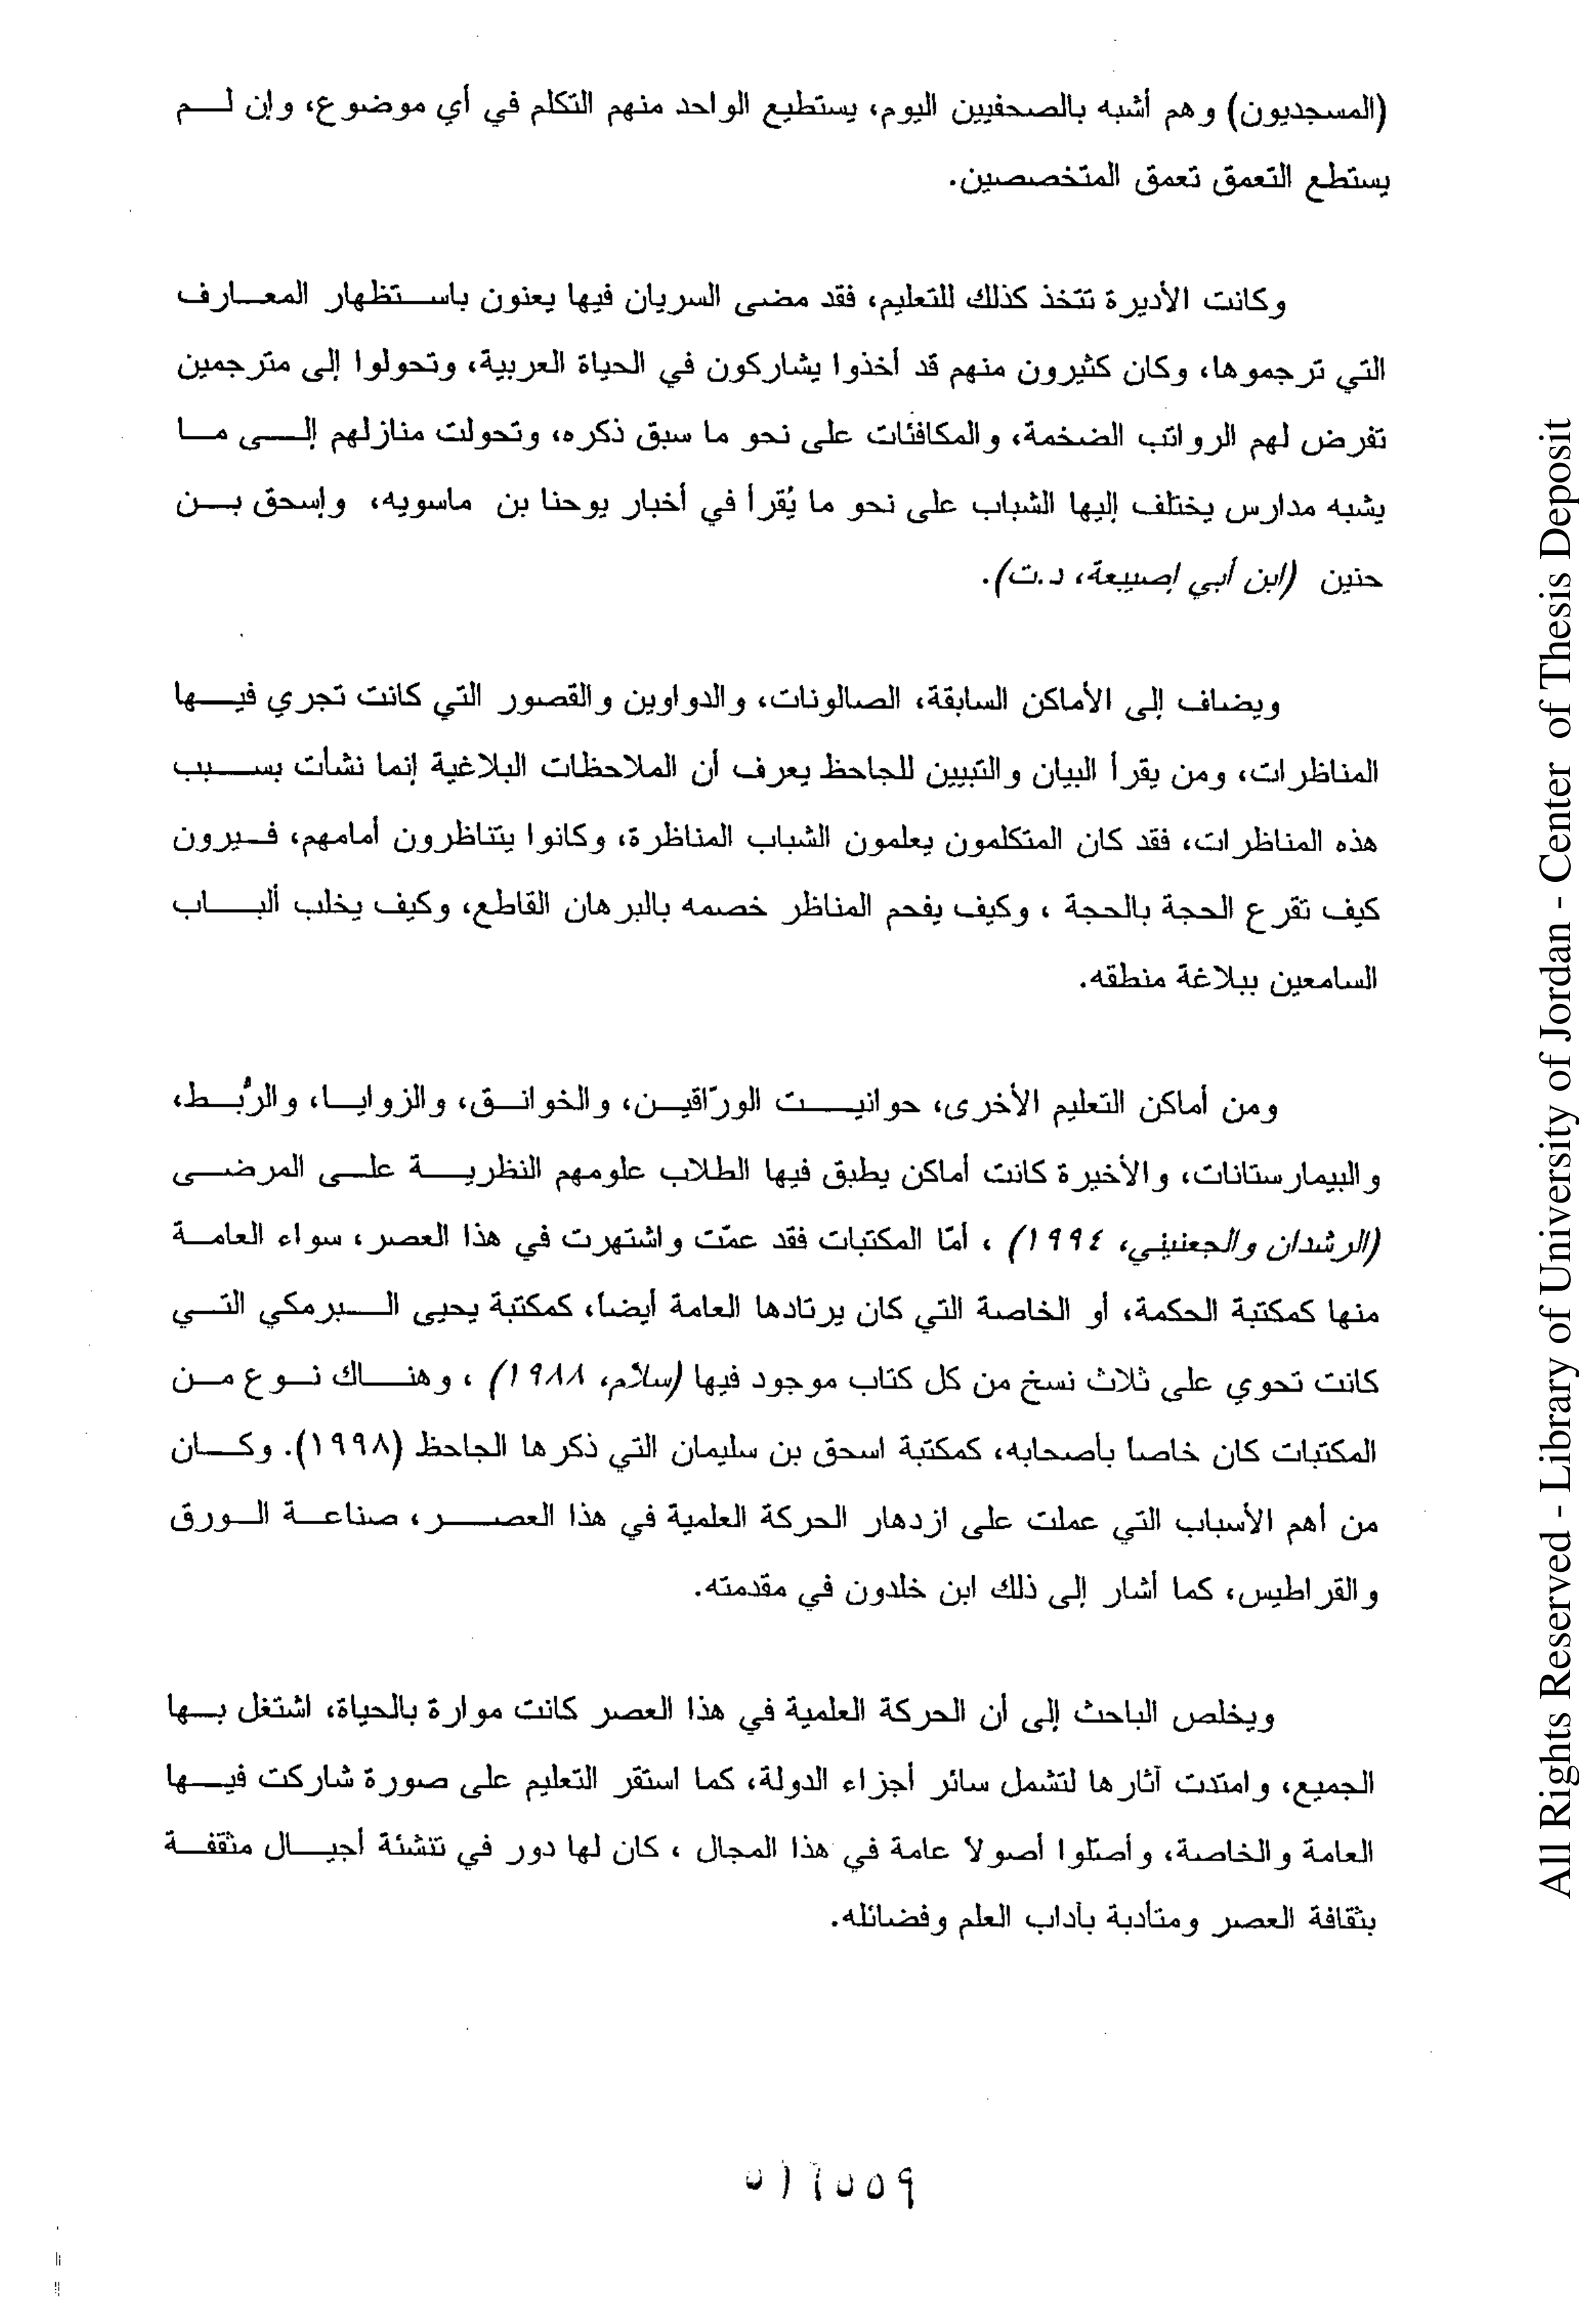 (المسجديون) وهم أشبه بالصحفيين اليوم، يستطيع الواحد منهم التكلم في أي موضوع، وإن لم
يستطع التعمق تعمق المتخصصين.
وكانت الأديرة تتخذ كذلك للتعليم، فقد مضى السريان فيها يعنون باستظهار المعارف
التي ترجموها، وكان كثيرون منهم قد أخذوا يشاركون في الحياة العربية، وتحولوا إلى مترجمين
تفرض لهم الرواتب الضخمة، والمكافئات على نحو ما سبق ذكره، وتحولت منازلهم إلى ما
يشبه مدارس يختلف إليها الشباب على نحو ما يُقرأ في أخبار يوحنا بن ماسويه، وإسحق بن
حنين (ابن أبي إصيبعة، د.ت).
ويضاف إلى الأماكن السابقة، الصالونات، والدواوين والقصور التي كانت تجري فيها
المناظرات، ومن يقرأ البيان والتبيين للجاحظ يعرف أن الملاحظات البلاغية إنما نشأت بسبب
هذه المناظرات، فقد كان المتكلمون يعلمون الشباب المناظرة، وكانوا يتناظرون أمامهم، فيرون
كيف تقرع الحجة بالحجة ، وكيف يفحم المناظر خصمه بالبرهان القاطع، وكيف يخلب ألباب
السامعين ببلاغة منطقه.
ومن أماكن التعليم الأخرى، حوانيت الورّاقين، والخوانق، والزوايا، والرُّبط،
والبيمارستانات، والأخيرة كانت أماكن يطبق فيها الطلاب علومهم النظرية على المرضى
(الرشدان والجعنيني، ١٩٩٤) ، أمّا المكتبات فقد عمّت واشتهرت في هذا العصر، سواء العامة
منها كمكتبة الحكمة، أو الخاصة التي كان يرتادها العامة أيضا، كمكتبة يحيى البرمكي التي
كانت تحوي على ثلاث نسخ من كل كتاب موجود فيها (سلاّم، ١٩٨٨) ، وهناك نوع من
المكتبات كان خاصا بأصحابه، كمكتبة اسحق بن سليمان التي ذكرها الجاحظ (١٩٩٨). وكان
من أهم الأسباب التي عملت على ازدهار الحركة العلمية في هذا العصر، صناعة الورق
والقراطيس، كما أشار إلى ذلك ابن خلدون في مقدمته.
ويخلص الباحث إلى أن الحركة العلمية في هذا العصر كانت موارة بالحياة، اشتغل بها
الجميع، وامتدت آثارها لتشمل سائر أجزاء الدولة، كما استقر التعليم على صورة شاركت فيها
العامة والخاصة، وأصّلوا أصولا عامة في هذا المجال ، كان لها دور في تنشئة أجيال مثقفة
بثقافة العصر ومتأدبة بآداب العلم وفضائله.
All Rights Reserved - Library of University of Jordan - Center of Thesis Deposit